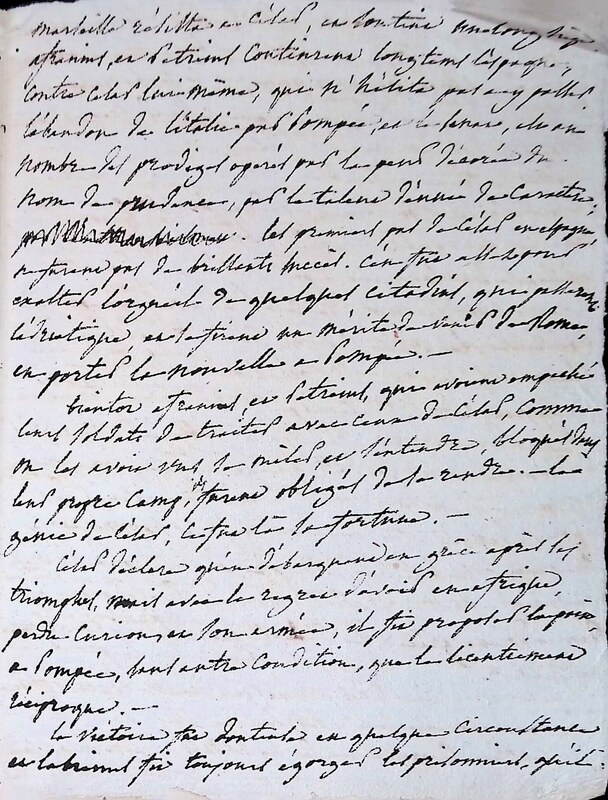 marseille résista a César, en soutint un long siège.
afranius, et Petreius continrent longtems l'espagne,
contre César lui même, qui n'hésita pas a y passer
l'abandon de l'italie par Pompée, et le sénat, est au
nombre des prodiges operés par la peur décorée du
nom de prudence, par le talent dénué de caractère,
les premiers pas de César en espagne
ne furent pas de brillants succès. C'en fut assez pour
exalter l'orgueil de quelques citadins, qui passerent
l'adriatique, et se firent un mérite de venir de Rome,
en porter la nouvelle a Pompée. —
bientot afranius, et Petreius, qui avoient empeché
leurs soldats de traiter avec ceux de César, comme
on les avoit vus se mêler, et s'entendre, bloqués dans
leur propre camp, furent obligés de se rendre. — le
génie de César, ce fut là sa fortune. —
César déclara qu'en débarquant en grèce après les
triomphes, mais avec le regret d'avoir en afrique,
perdu Curion, et son armée, il fit proposer la paix,
a Pompée, sans autre condition, que le licentiement
réciproque. —
la victoire fut douteuse en quelque circonstance
et labienus fit toujours égorger les prisonniers, qu'il